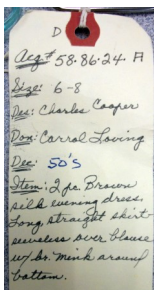 D
Acq# 58.86.24. A
Size: 6-8
Des: Charles Cooper
Don: Carrol Loving
Dec: 50's
Item: 2 pc. Brown
silk evening dress.
Long straight skirt
sleeveless over blouse
w/ br. mink around
bottom.